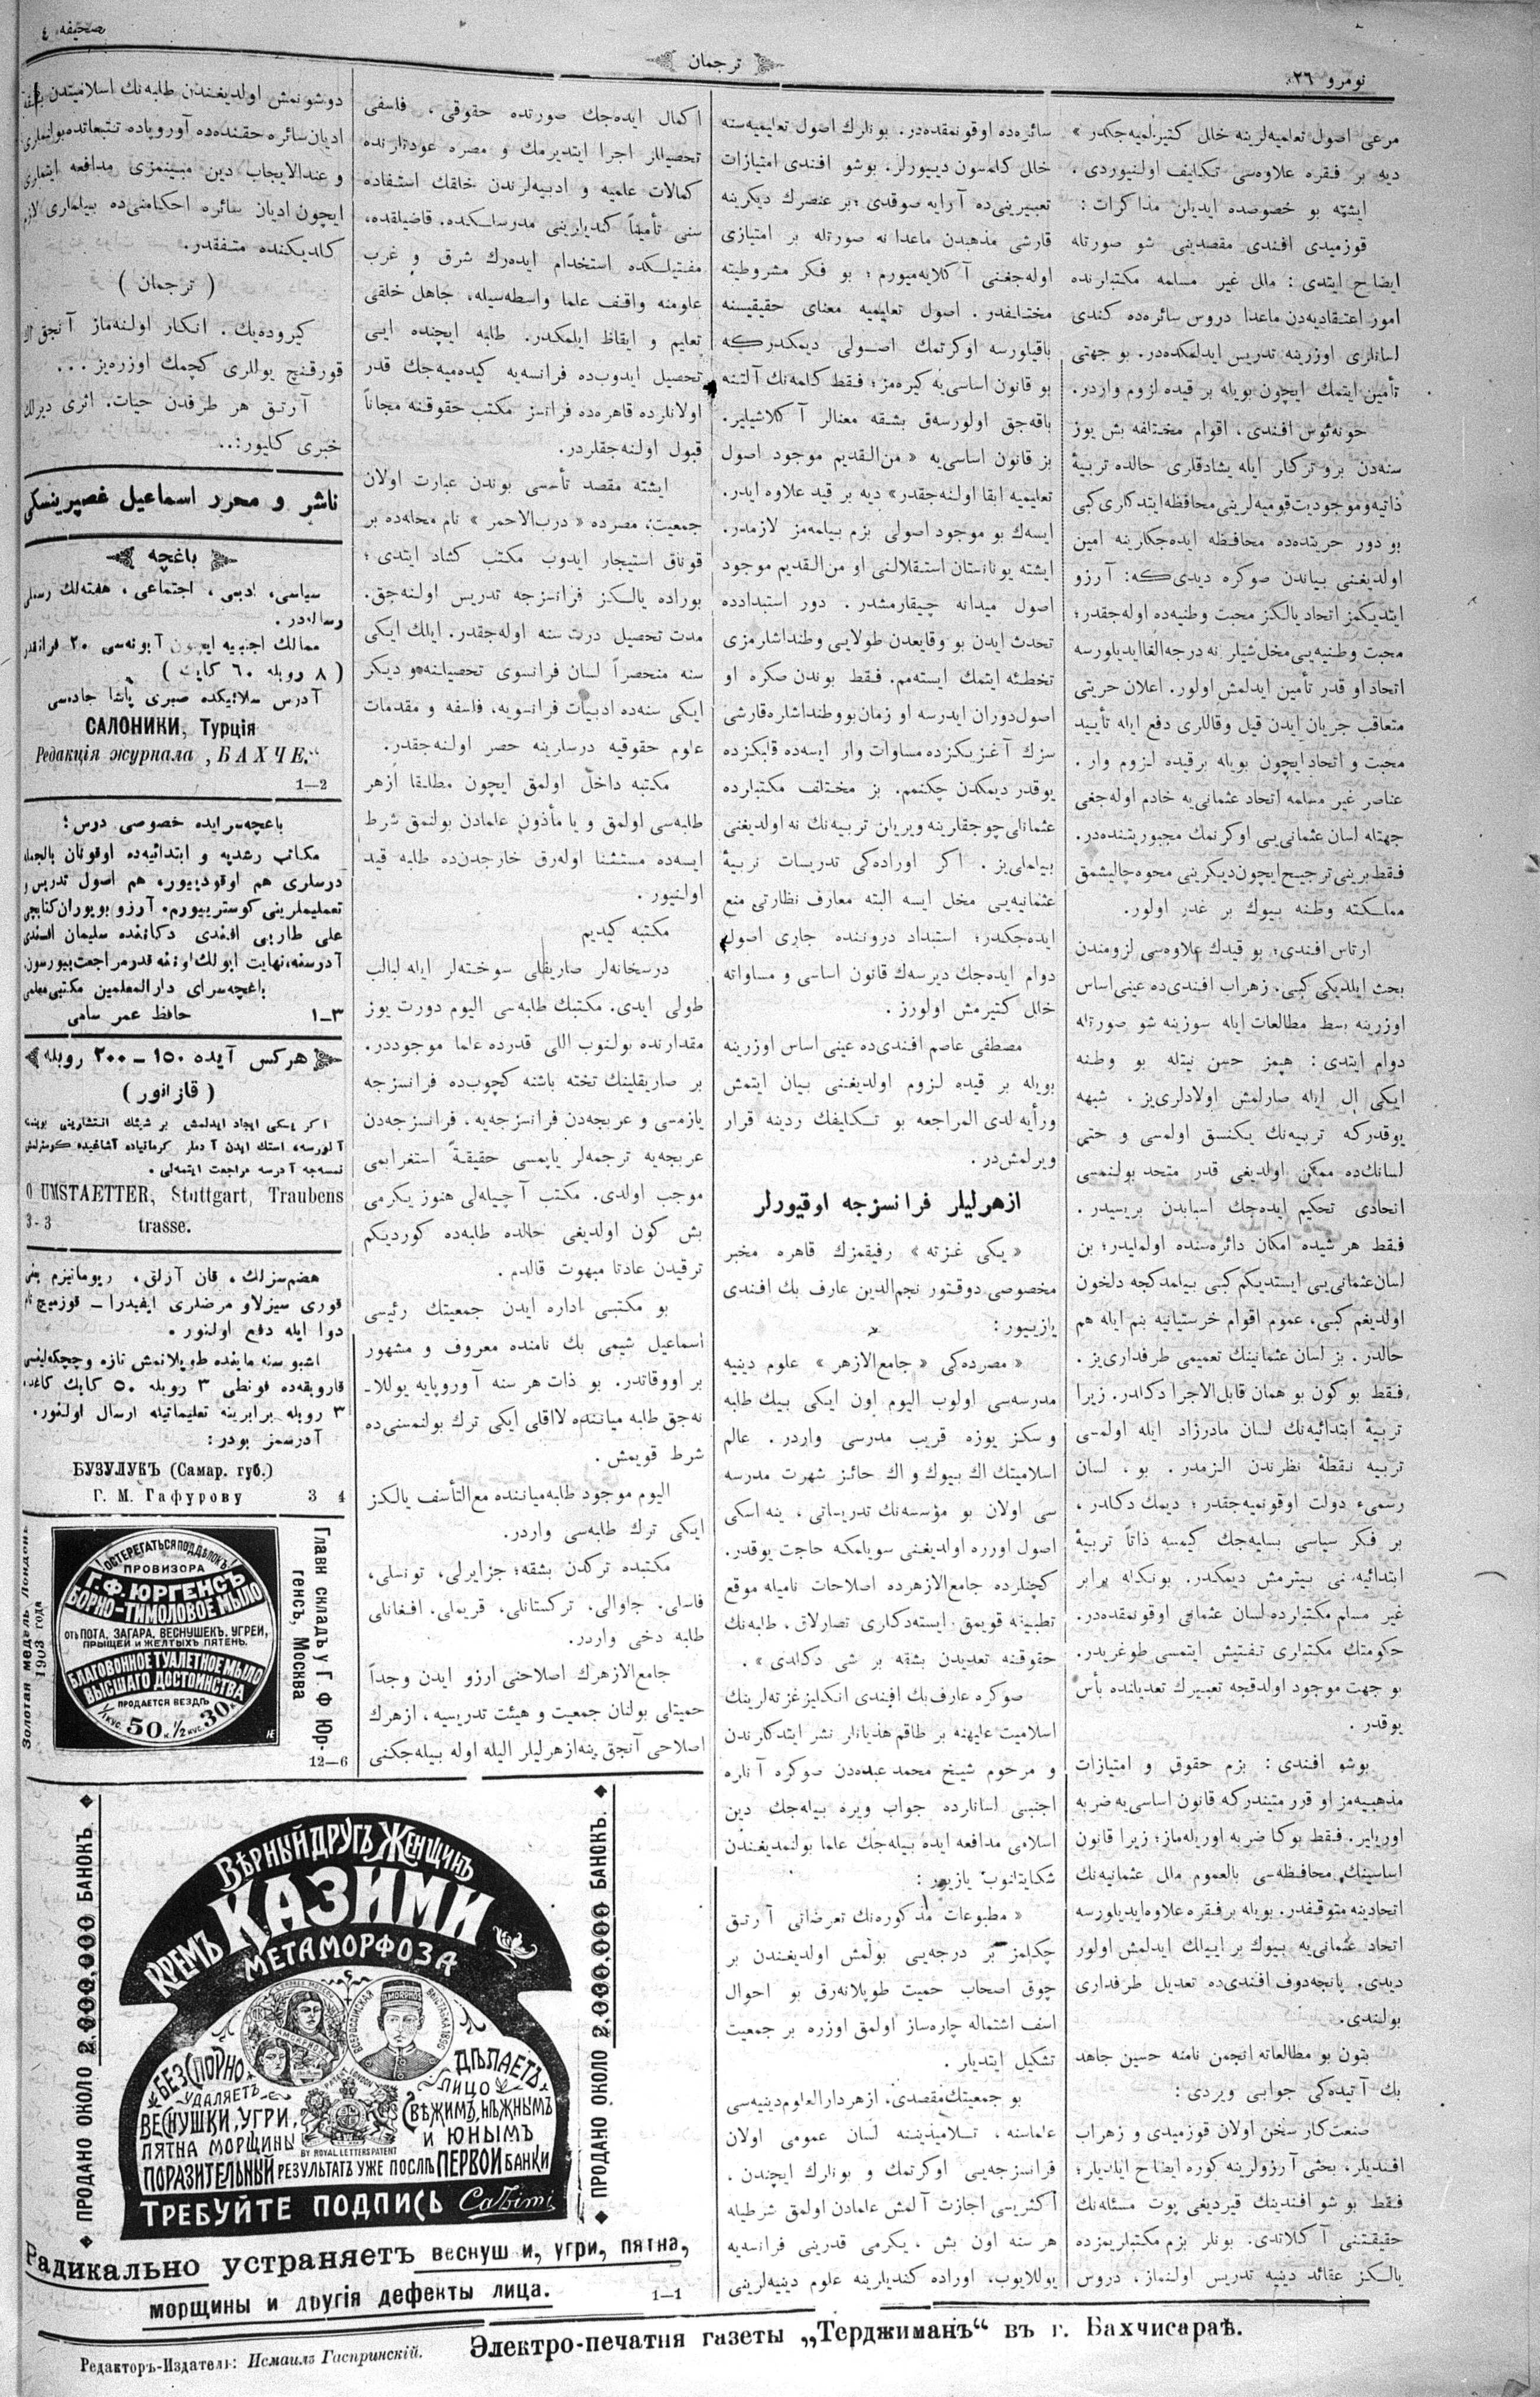 نومرو ٢٦
ترجمان
صحيفه ٤
مرعی اصول تعلميه‌لرينه خلل كتيرلميه‌جكدر »
ديه بر فقره علاوه‌سی تكليف اولنيوردی .
ايشته بو خصوصده ايديلن مذاكرات :
قوزميدی افندی مقصدينی شو صورتله
ايضاح ايتدی : ملل غير مسلمه مكتبلرنده
امور اعتقاديه‌دن ماعدا دروس سائره‌ده كندی
لسانلری اوزرينه تدريس ايدلمكده‌در. بو جهتی
تأمين ايتمك ايچون بويله بر قيده لزوم واردر.
سنه‌دن برو تركلر ايله يشادقلری حالده تربيهٔ
بو دور حريتده‌ده محافظه ايده‌جكلرينه امين
اولديغنی بياندن صوكره ديدی كه: آرزو
ايتديكمز اتحاد يالكز محبت وطنيه‌ده اوله‌جقدر؛
اتحاد او قدر تأمين ايدلمش اولور. اعلان حريتی
متعاقب جريان ايدن قيل وقاللری دفع ايله تأييد
محبت و اتحاد ايچون بويله برقيده لزوم وار .
عناصر غير مسلمه اتحاد عثمانی‌يه خادم اوله‌جغی
جهتله لسان عثمانی‌يی اوكرنمك مجبوريتنده‌در.
فقط برينی ترجيح ايچون ديكرينی محوه چاليشمق
مملكته وطنه بيوك بر غدر اولور.
ارتاس افندی؛ بو قيدك علاوه‌سی لزومندن
بحث ايلديكی كبی. زهراب افندی‌ده عينی اساس
اوزرينه بسط مطالعات ايله سوزينه شو صورتله
دوام ايتدی : هپمز حسن نيتله بو وطنه
ايكی ال ايله صارلمش اولادلری‌يز . شبهه
يوقدركه تربيه‌نك يكنسق اولمسی و حتی
لسانك‌ده ممكن اولديغی قدر متحد بولنمسی
اتحادی تحكيم ايده‌جك اسبابدن بريسيدر.
فقط هر شيده امكان دائره‌سنده اولمليدر؛ بن
لسان عثمانی‌يی ايستديكم كبی بيلمدكجه دلخون
اولديغم كبی، عموم اقوام خرستيانيه بنم ايله هم
حالدر . بز لسان عثمانينك تعميمی طرفداری‌يز .
فقط بو كون بو همان قابل الاجرا دكلدر. زيرا
تربيهٔ ابتدائيه‌نك لسان مادرزاد ايله اولمسی
تربيه نقطهٔ نظرندن الزمدر. بو، لسان
رسمیٔ دولت اوقونميه‌جقدر ؛ ديمك دكلدر ،
بر فكر سياسی بسليه‌جك كيمسه ذاتاً تربيهٔ
ابتدائيه‌نی بيترمش ديمكدر. بونكله برابر
غير مسلم مكتبلرده لسان عثمانی اوقونمقده‌در.
حكومتك مكتبلری تفتيش ايتمسی طوغريدر.
بو جهت موجود اولدقجه تعبيرك تعديلنده بأس
يوقدر .
بوشو افندی : بزم حقوق و امتيازات
مذهبيه‌مز او قدر متيندركه قانون اساسی‌يه ضربه
اوريلير. فقط بوكا ضربه اوريله‌ماز؛ زيرا قانون
اساسينك محافظه‌سی بالعموم ملل عثمانيه‌نك
اتحادينه متوقفدر. بويله بر فقره علاوه ايديلورسه
اتحاد عثمانی‌يه بيوك بر اييلك ايدلمش اولور
ديدی. پانجه‌دوف افندی‌ده تعديل طرفداری
بولندی.
بتون بو مطالعاته انجمن نامنه حسين جاهد
بك آتيده‌كی جوابی ويردی :
صنعتكار سخن اولان قوزميدی و زهراب
افنديلر، بحثی آرزولرينه كوره ايضاح ايلديلر؛
فقط بو شو افندينك قيرديغی پوت مسئله‌نك
حقيقتنی آكلاتدی. بونلر بزم مكتبلريمزده
يالكز عقائد دينيه تدريس اولنماز، دروس
سائره‌ده اوقونمقده‌در. بونلرك اصول تعليميه‌سنه
خلل كلمسون ديييورلر. بوشو افندی امتيازات
تعبيرينی‌ده آرايه صوقدی؛ بر عنصرك ديكرينه
قارشی مذهبدن ماعدا نه صورتله بر امتيازی
اوله‌جغنی آكلايه‌ميورم ؛ بو فكر مشروطيته
مختلفدر. اصول تعليميه معنای حقيقيسنه
باقيلورسه اوكرتمك اصولی ديمكدركه
بو قانون اساسی‌يه كيره‌مز؛ فقط كلمه‌نك آلتنه
باقه‌جق اولورسه‌ق بشقه معنالر آكلاشيلير.
بز قانون اساسی‌يه « من القديم موجود اصول
تعليميه ابقا اولنه‌جقدر» ديه بر قيد علاوه ايدر.
ايسه‌ك بو موجود اصولی بزم بيلمه‌مز لازمدر.
ايشته يونانستان استقلالنی او من القديم موجود
اصول ميدانه چيقارمشدر. دور استبدادده
تحدث ايدن بو وقايعدن طولايی وطنداشلرمزی
تخطئه ايتمك ايسته‌مم. فقط بوندن صكره او
اصول دوران ايدرسه او زمان بو وطنداشلره قارشی
سزك آغزيكزده مساوات وار ايسه‌ده قلبكزده
يوقدر ديمكدن چكنمم. بز مختلف مكتبلرده
عثمانلی چوجقلرينه ويريلن تربيه‌نك نه اولديغنی
بيلملی‌يز . اكر اوراده‌كی تدريسات تربيهٔ
عثمانيه‌يی مخل ايسه البته معارف نظارتی منع
ايده‌جكدر؛ استبداد دروننده جاری اصول
دوام ايده‌جك ديرسه‌ك قانون اساسی و مساواته
خلل كتيرمش اولورز .
مصطفی عاصم افندی‌ده عينی اساس اوزرينه
بويله بر قيده لزوم اولديغنی بيان ايتمش
ورأيه لدی المراجعه بو تكليفك ردينه قرار
ويرلمش‌در.
ازهرليلر فرانسزجه اوقيورلر
« يكی غزته » رفيقمزك قاهره مخبر
مخصوصی دوقتور نجم الدين عارف بك افندی
يازييور :
« مصرده‌كی « جامع الازهر » علوم دينيه
مدرسه‌سی اولوب اليوم اون ايكی بيك طلبه
و سكز يوزه قريب مدرسی واردر. عالم
اسلاميتك اك بيوك و اك حائز شهرت مدرسه
سی اولان بو مؤسسه‌نك تدريساتی ، ينه اسكی
اصول اوزره اولديغنی سويلمكه حاجت يوقدر.
كچنلرده جامع الازهرده اصلاحات ناميله موقع
تطبيقه قويمق ايسته‌دكلری نضارلق ، طلبه‌نك
حقوقنه تعديدن بشقه بر شی دكلدی» .
صوكره عارف بك افندی انكليز غزته‌لرينك
اسلاميت عليهنه بر طاقم هذيانلر نشر ايتدكلرندن
و مرحوم شيخ محمد عبده‌دن صوكره آنلره
اجنبی لسانلرده جواب ويره بيله‌جك دين
اسلامی مدافعه ايده بيله‌جك علما بولنمديغندن
شكايتلنوب يازييور :
« مطبوعات مذكوره‌نك تعرضاتی آرتق
چكلمز بر درجه‌يی بولمش اولديغندن بر
چوق اصحاب حميت طوپلانه‌رق بو احوال
اسف اشتماله چاره‌ساز اولمق اوزره بر جمعيت
تشكيل ايتديلر .
بو جمعيتك مقصدی، ازهر دار العلوم دينيه‌سی
علماسنه ، تلاميذينه لسان عمومی اولان
فرانسزجه‌يی اوكرتمك و بونلرك ايچندن ،
اكثريسی اجازت آلمش علمادن اولمق شرطيله
هر سنه اون بش ، يكرمی قدرينی فرانسه‌يه
يوللايوب، اوراده كنديلرينه علوم دينيه‌لرينی
اكمال ايده‌جك صورتده حقوقی ، فلسفی
تحصيللر اجرا ايتديرمك و مصره عودتلرنده
كمالات علميه و ادبيه‌لرندن خلقك استفاده
سنی تأميناً كنديلرينی مدرسلكده. قاضيلقده،
مفتيلكده استخدام ايده‌رك شرق و غرب
علومنه واقف علما واسطه‌سيله، جاهل خلقی
تعليم و ايقاظ ايلمكدر. طلبه ايچنده ايی
تحصيل ايدوب‌ده فرانسه‌يه كيده‌ميه‌جك قدر
اولانلرده قاهره‌ده فرانسز مكتب حقوقنه مجاناً
قبول اولنه‌جقلردر.
ايشته مقصد تأسسی بوندن عبارت اولان
جمعيت؛ مصرده « درب الاحمر » نام محله‌ده بر
قوناق استيجار ايدوب مكتب كشاد ايتدی ؛
بوراده يالكز فرانسزجه تدريس اولنه‌جق.
مدت تحصيل درت سنه اوله‌جقدر. ايلك ايكی
سنه منحصراً لسان فرانسوی تحصيلنه و ديكر
ايكی سنه‌ده ادبيات فرانسويه، فلسفه و مقدمات
علوم حقوقيه درسلرينه حصر اولنه‌جقدر.
مكتبه داخل اولمق ايچون مطلقا ازهر
طلبه‌سی اولمق و يا مأذون علمادن بولنمق شرط
ايسه‌ده مستثنا اوله‌رق خارجدن‌ده طلبه قيد
اولنيور.
مكتبه كيديم
درسخانه‌لر صاريقلی سوخته‌لر ايله لبالب
طولی ايدی. مكتبك طلبه‌سی اليوم دورت يوز
مقدارنده بولنوب اللی قدرده علما موجوددر.
بر صاريقلينك تخته باشنه كچوب‌ده فرانسزجه
يازمسی و عربجه‌دن فرانسزجه‌يه، فرانسزجه‌دن
عربجه‌يه ترجمه‌لر ياپمسی حقيقةً استغرابمی
موجب اولدی. مكتب آچيله‌لی هنوز يكرمی
بش كون اولديغی حالده طلبه‌ده كورديكم
ترقيدن عادتا مبهوت قالدم .
بو مكتبی اداره ايدن جمعيتك رئيسی
اسماعيل شيمی بك نامنده معروف و مشهور
بر اووقاتدر. بو ذات هر سنه آوروپايه يوللا-
نه‌جق طلبه مياننده لااقل ايكی ترك بولنمسنی‌ده
شرط قويمش .
اليوم موجود طلبه مياننده مع التأسف يالكز
ايكی ترك طلبه‌سی واردر.
مكتبده تركدن بشقه؛ جزايرلی، تونسلی،
فاسلی. جاوالی، تركستانلی، قريملی، افغانلی
طلبه دخی واردر.
جامع الازهرك اصلاحنی ارزو ايدن وجداً
حميتلی بولنان جمعيت و هيئت تدريسيه ، ازهرك
اصلاحی آنجق ينه ازهرليلر اليله اوله بيله‌جكنی
دوشونمش اولديغندن طلبه‌نك اسلاميتدن بشقه
اديان سائره حقنده‌ده آوروپاده تتبعاتده بولنملری
و عندالايجاب دين مبينمزی مدافعه ايتملری
ايچون اديان سائره احكامنی‌ده بيلملری لازم
كلديكنده متفقدر.
( ترجمان )
كيروده‌يك. انكار اولنه‌ماز آنجق اك
قورقنچ يوللری كچمك اوزره‌يز ...
آرتق هر طرفدن حيات. اثری ديرلك
خبری كليور...
ناشر و محرر اسماعيل غصپرينسكی
باغچه
سياسی، ادبی ، اجتماعی ، هفته‌لك رسملی
رساله‌در .
ممالك اجنبيه ايچون آبونه‌سی ٢٠ فرانقدر
( ٨ روبله ٦٠ كاپك )
آدرس سلانيكده صبری پاشا جاده‌سی
САЛОНИКИ, Турція
Редакція журнала „БАХЧЕ.“
1—2
باغچه‌سرايده خصوصی درس؛
مكاتب رشديه و ابتدائيه‌ده اوقونان بالجمله
درسلری هم اوقودييور، هم اصول تدريس و
تعمليملرينی كوسترييورم. آرزو بويوران كتابچی
علی طارپی افندی دكاننده سليمان افندی
باغچه‌سرای دارالمعلمين مكتبی معلمی
حافظ عمر سامی
١—٣
هركس آيده ١٥٠ — ٢٠٠ روبله
( قازانور )
اكر يكی ايجاد ايدلمش بر شيئك انتشارينی بوينه
آلورسه، استك ايدن آدملر كرمانياده آشاغيده كوسترلمش
نمسه‌جه آدرسه مراجعت ايتمه‌لی .
O UMSTAETTER, Stuttgart, Traubens
trasse.
3-3
هضم‌سزلك، قان آزلق، ريومانيزم يعنی
دوا ايله دفع اولنور .
اشبو سنه مايئده طوپلانمش تازه و چچكه‌ليسی
قاروبقه‌ده فونطی ٣ روبله ٥٠ كاپك كاغده
٣ روبله برابرينه تعليماتيله ارسال اولنور.
آدرسمز بودر:
БУЗУЛУКЪ (Самар. губ.)
Г. М. Гафурову
3 4
Золотая медаль Лондонъ
1903 года
ОСТЕРЕГАТЬСЯ ПОДДѢЛОКЪ
ПРОВИЗОРА
Г. Ф. ЮРГЕНСЪ
БОРНО-ТИМОЛОВОЕ МЫЛО
отъ ПОТА, ЗАГАРА, ВЕСНУШЕКЪ, УГРЕЙ,
ПРЫЩЕЙ и ЖЕЛТЫХЪ ПЯТЕНЪ.
БЛАГОВОННОЕ ТУАЛЕТНОЕ МЫЛО
ВЫСШАГО ДОСТОИНСТВА
ПРОДАЕТСЯ ВЕЗДѢ
1/1 КУС. 50 к. 1/2 КУС 30 к.
Главн складъ у Г. Ф Юр-
генсъ, Москва
12—6
ПРОДАНО ОКОЛО 2.000.000 БАНОКЪ
ВѢРНЫЙ ДРУГЪ ЖЕНЩИНЪ
КРЕМЪ КАЗИМИ
МЕТАМОРФОЗА
БЕЗСПОРНО
УДАЛЯЕТЪ
ВЕСНУШКИ, УГРИ,
ПЯТНА МОРЩИНЫ
ДѢЛАЕТЪ
ЛИЦО
СВѢЖИМЪ, НѢЖНЫМЪ
И ЮНЫМЪ
BY ROYAL LETTERS PATENT
ПОРАЗИТЕЛЬНЫЙ РЕЗУЛЬТАТЪ УЖЕ ПОСЛѢ ПЕРВОЙ БАНКИ
ТРЕБУЙТЕ ПОДПИСЬ Cazimi
ПРОДАНО ОКОЛО 2.000.000 БАНОКЪ.
Радикально устраняетъ веснуш и, угри, пятна,
морщины и другія дефекты лица.
1—1
Редакторъ-Издатель: Исмаилъ Гаспринскій.
Электро-печатня газеты „Терджиманъ“ въ г. Бахчисараѣ.